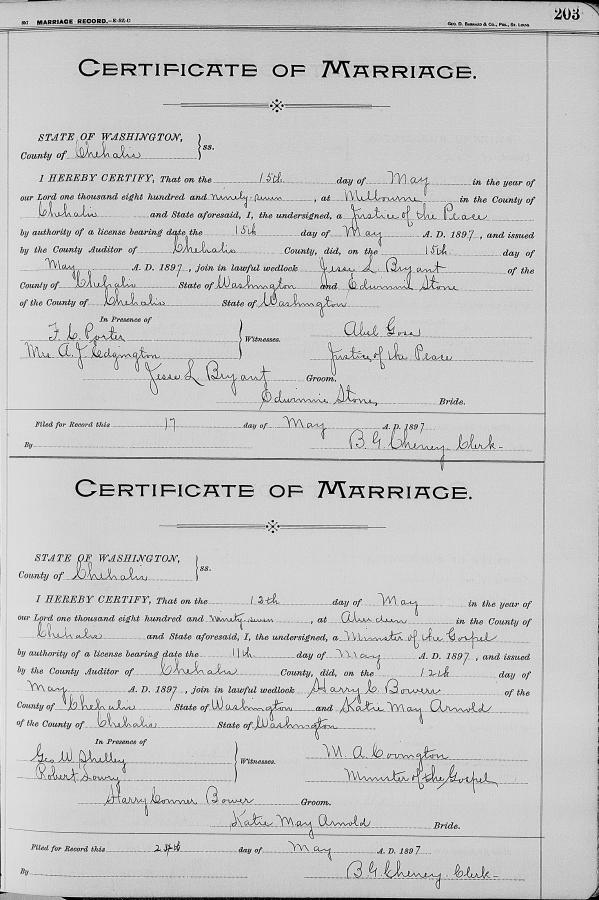 897 MARRIAGE RECORD.—E-SZ-C GEO. D. BARNARD & CO., PRS., ST. LOUIS 203
CERTIFICATE OF MARRIAGE.
STATE OF WASHINGTON,
County of Chehalis ss.
I HEREBY CERTIFY, That on the 15th day of May in the year of
our Lord one thousand eight hundred and ninety-seven, at Melbourne in the County of
Chehalis and State aforesaid, I, the undersigned, a Justice of the Peace
by authority of a license bearing date the 15th day of May A. D. 1897, and issued
by the County Auditor of Chehalis County, did, on the 15th day of
May A. D. 1897, join in lawful wedlock Jesse L Bryant of the
County of Chehalis State of Washington and Edwinnie Stone
of the County of Chehalis State of Washington
In Presence of
F. C. Porter
Mrs A. J. Edgington
Witnesses.
Abel Goss
Justice of the Peace
Jesse L Bryant Groom.
Edwinnie Stone, Bride.
Filed for Record this 17 day of May A. D. 1897
By B. G. Cheney Clerk-
CERTIFICATE OF MARRIAGE.
STATE OF WASHINGTON,
County of Chehalis ss.
I HEREBY CERTIFY, That on the 12th day of May in the year of
our Lord one thousand eight hundred and ninety-seven, at Aberdeen in the County of
Chehalis and State aforesaid, I, the undersigned, a Minister of the Gospel
by authority of a license bearing date the 11th day of May A. D. 1897, and issued
by the County Auditor of Chehalis County, did, on the 12th day of
May A. D. 1897, join in lawful wedlock Harry C Bower of the
County of Chehalis State of Washington and Katie May Arnold
of the County of Chehalis State of Washington
In Presence of
Geo W. Shelley
Robert Lowry
Witnesses.
M. A. Covington
Minister of the Gospel
Harry Conner Bower Groom.
Katie May Arnold Bride.
Filed for Record this day of May A. D. 1897
By B. G. Cheney Clerk-